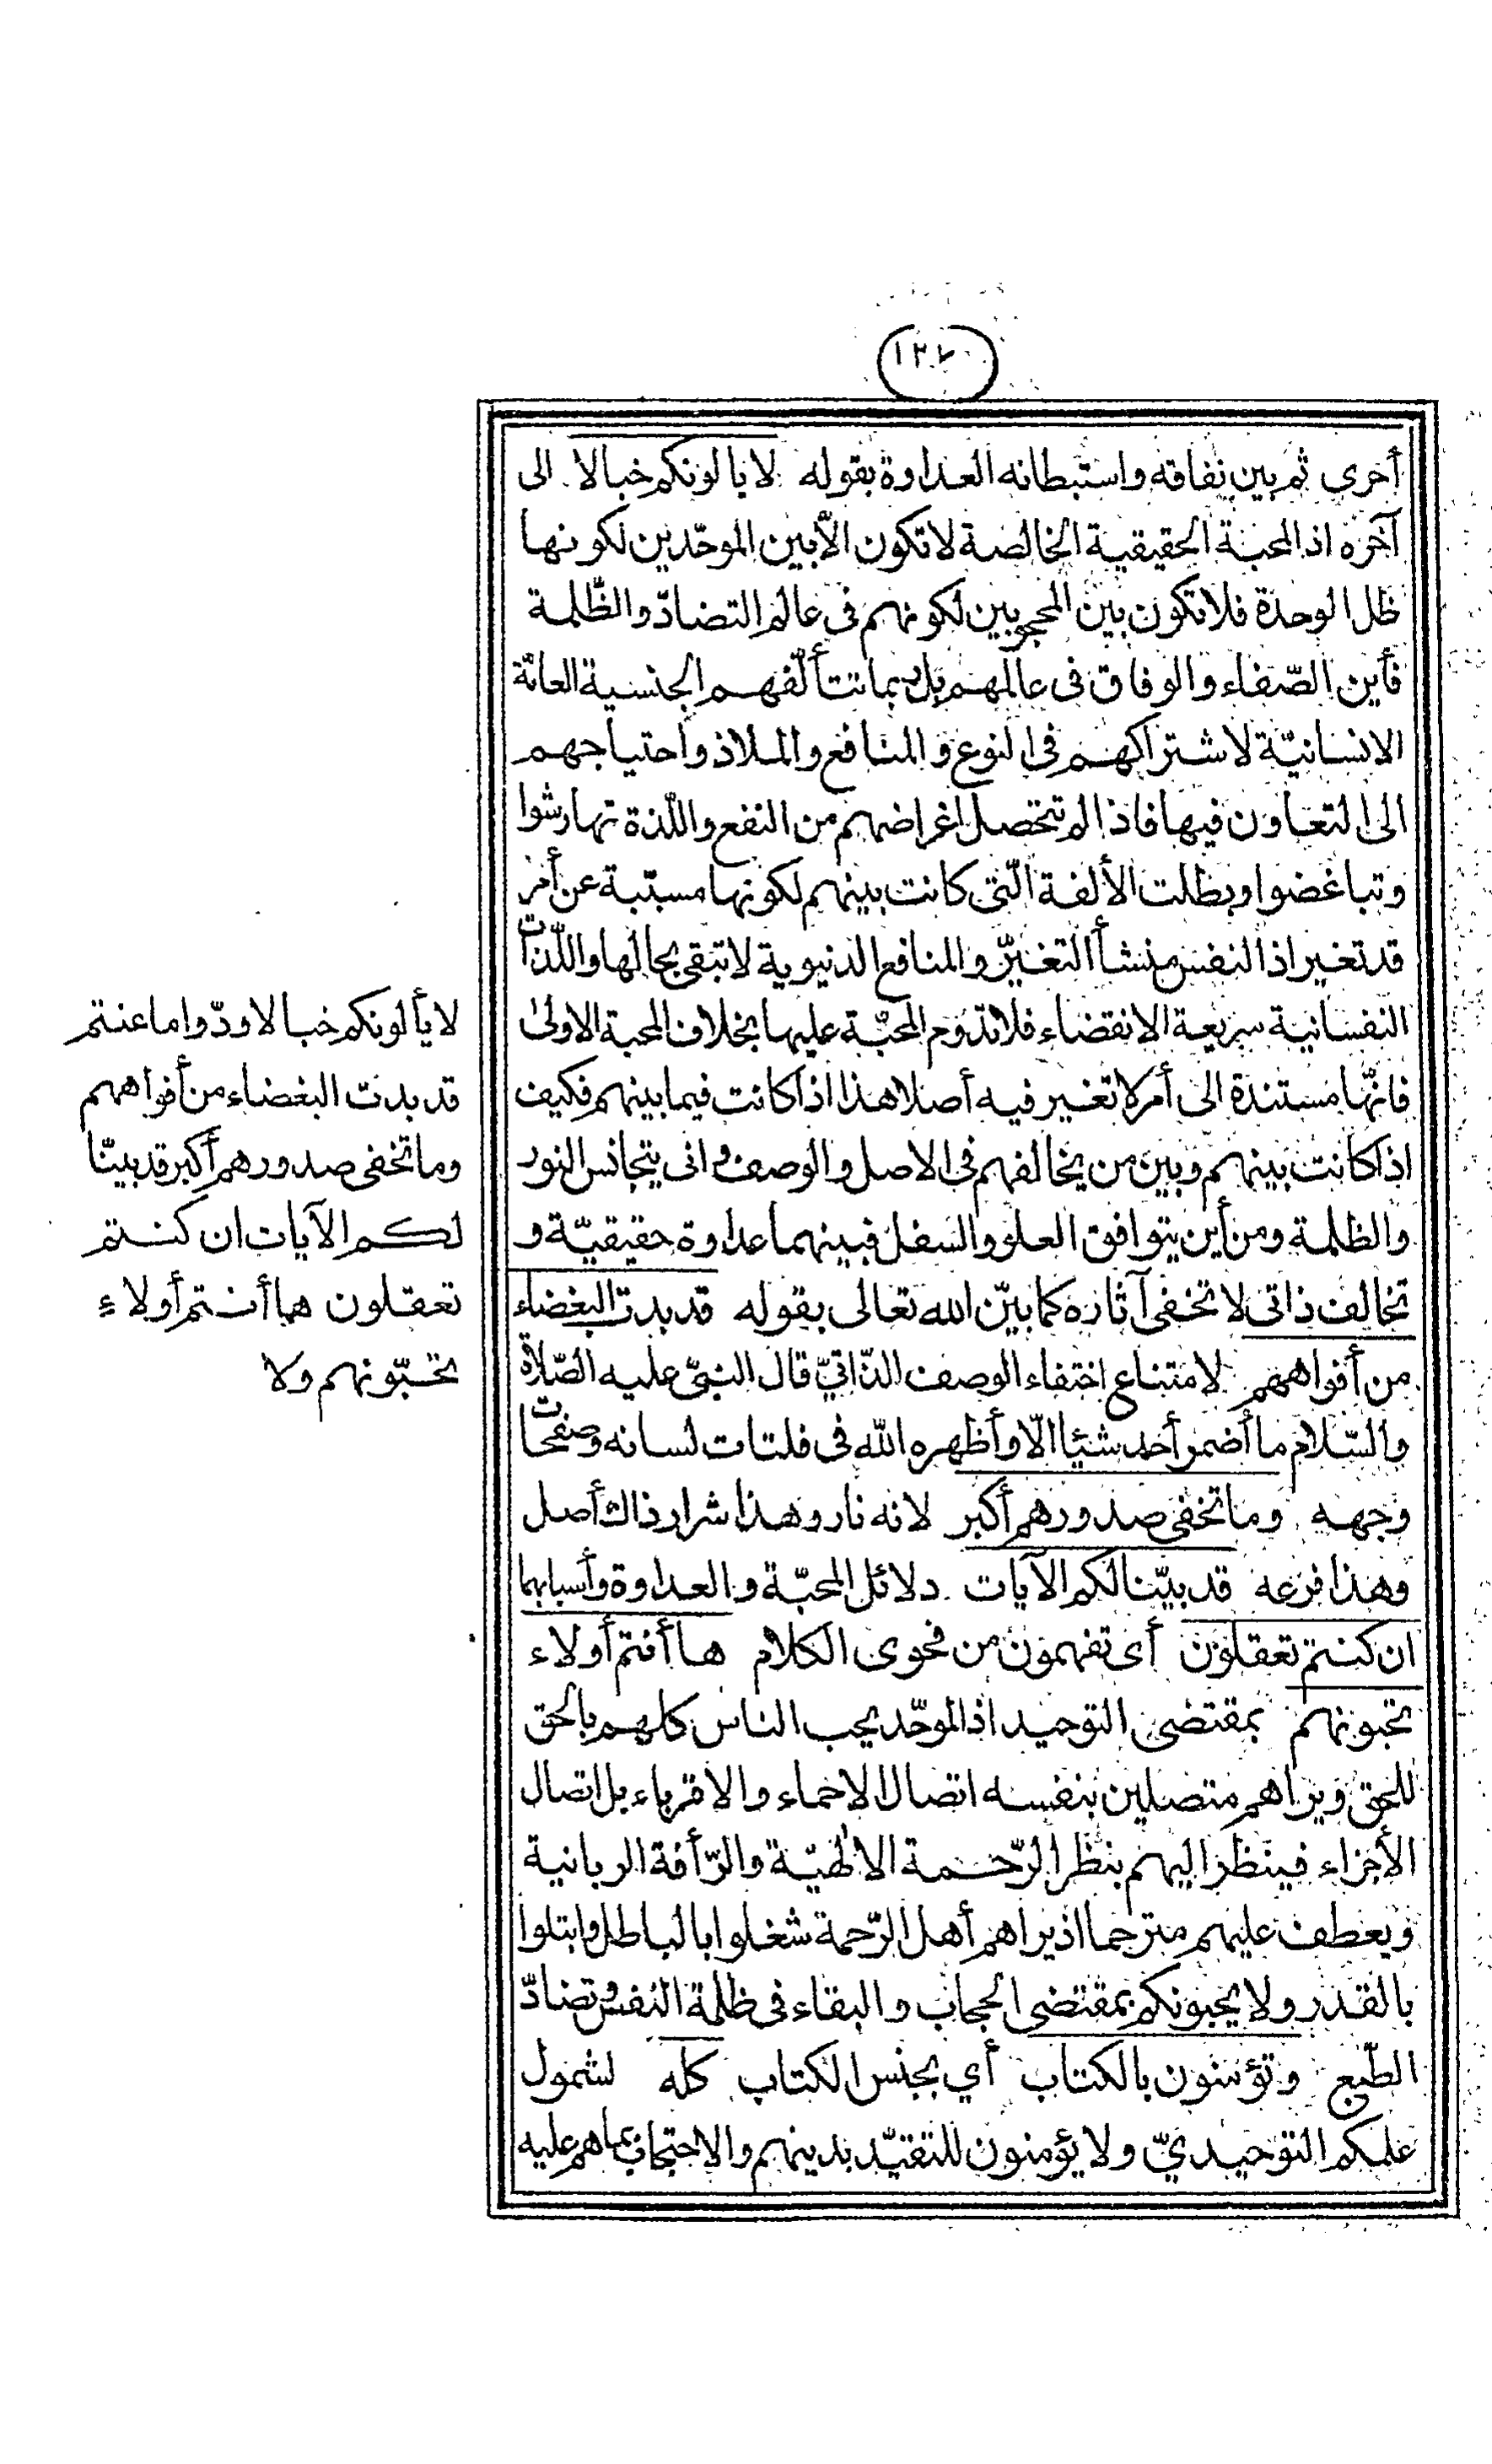 أخرى ثم بين نفاقه واستبطانه العداوة بقوله لا يالونكم خبالا الى
آخره اذ المحبة الحقيقية الخالصة لا تكون الّا بين الموحّدين لكونها
ظل الوحدة فلا تكون بين المحجوبين لكونهم فى عالم التضادّ والظّلمة
فأين الصّفاء والوفاق فى عالمهم بل ربما تتألّفهم الجنسية العامّة
الانسانيّة لاشتراكهم فى النوع و المنافع والملاذ واحتياجهم
الى التعاون فيها فاذا لم تتحصل اغراضهم من النفع واللّذة تهارشوا
وتباغضوا وبطلت الألفة الّتى كانت بينهم لكونها مسبّبة عن أمر
قد تغير اذ النفس منشأ التغيّر والمنافع الدنيوية لا تبقى بحالها واللّذات
النفسانية سريعة الانقضاء فلا تدوم المحبّة عليها بخلاف المحبة الاولى
فانّها مستندة الى أمر لا تغير فيه أصلا هذا اذا كانت فيما بينهم فكيف
اذا كانت بينهم وبين من يخالفهم فى الاصل والوصف وانى يتجانس النور
والظلمة ومن أين يتوافق العلو والسفل فبينهما عداوة حقيقيّة و
تخالف ذاتى لا تخفى آثاره كما بيّن الله تعالى بقوله قد بدت البغضاء
من أفواههم لامتناع اختفاء الوصف الذّاتيّ قال النبىّ عليه الصّلاة
والسّلام ما أضمر أحد شيئا الّا وأظهره الله فى فلتات لسانه وصفحات
وجهه وما تخفى صدورهم أكبر لانه نار وهذا شرار ذاك أصل
وهذا فرعه قد بيّنا لكم الآيات دلائل المحبّة والعداوة وأسبابهما
ان كنتم تعقلون أى تفهمون من فحوى الكلام ها أنتم أولاء
تحبونهم بمقتضى التوحيد اذ الموحّد يحب الناس كلهم بالحق
للحق ويراهم متصلين بنفسه اتصال الاحماء والاقرباء بل اتصال
الأجزاء فينظر اليهم بنظر الرّحمة الالهيّة والرّأفة الربانية
ويعطف عليهم مترحما اذ يراهم أهل الرّحمة شغلوا بالباطل وابتلوا
بالقدر ولا يحبونكم بمقتضى الحجاب والبقاء فى ظلمة النفس وتضادّ
الطّبع وتؤمنون بالكتاب أي بجنس الكتاب كله لشمول
علمكم التوحيديّ ولا يؤمنون للتقيّد بدينهم والاحتجاب بما هم عليه
لا يألونكم خبالا ودّوا ما عنتم
قد بدت البغضاء من أفواههم
وما تخفى صدورهم أكبر قد بينّا
لكم الآيات ان كنتم
تعقلون ها أنتم أولاء
تحبّونهم ولا